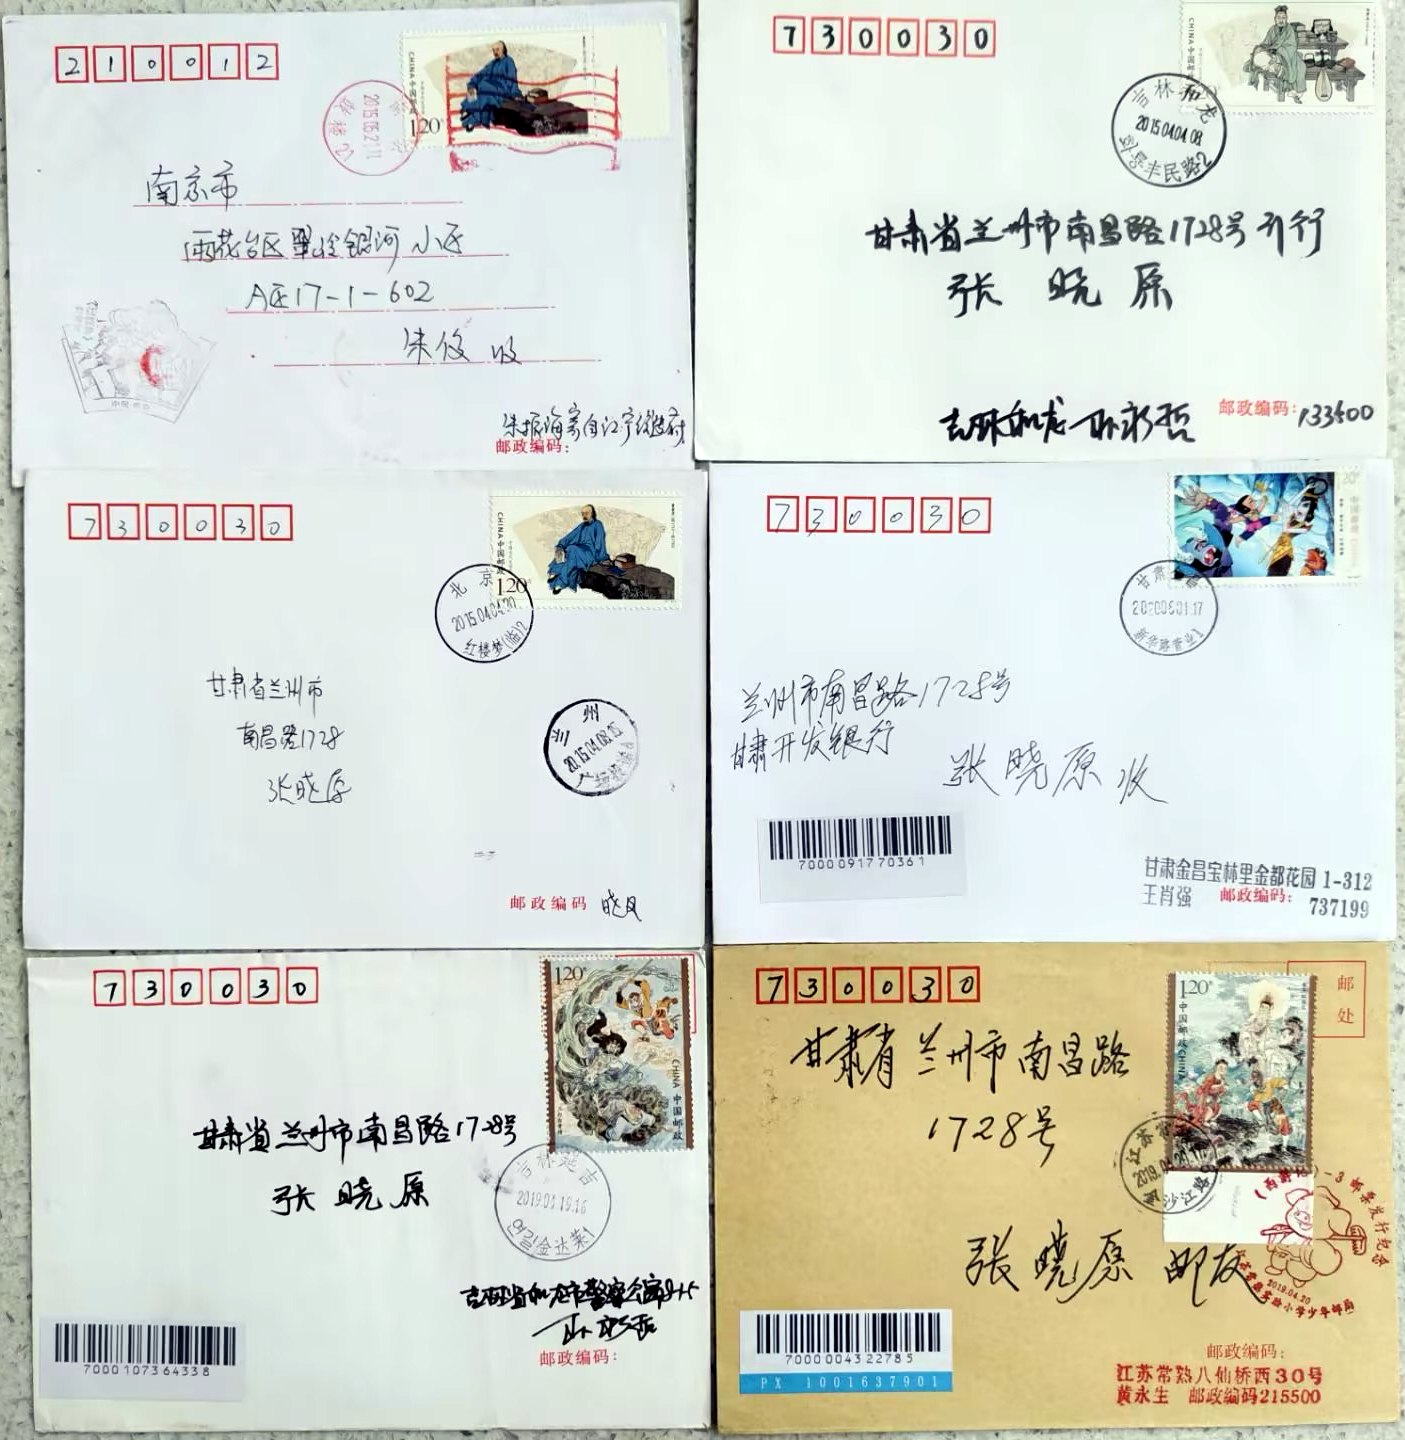 210012
CHINA 中国邮政
120
2015.05.21.11
南京市
雨花台区翠岭银河小区
A区17-1-602
朱俊 收
朱振海寄自江宁织造府
邮政编码:
730030
吉林和龙
2015.04.04.08
화룡丰民路2
甘肃省兰州市南昌路1728号 引行
张晓原
吉林和龙
邮政编码: 133500
730030
CHINA 中国邮政
120
北京
2015.04.04.20
红楼梦(临)2
甘肃省兰州市
南昌路1728
张晓原
兰州
2015.04.08.05
邮政编码
730030
新华路营业1
兰州市南昌路1728号
甘肃开发银行
张晓原 收
7000091770361
甘肃金昌宝林里金都花园 1-312
王肖强 邮政编码: 737199
730030
120
CHINA 中国邮政
甘肃省兰州市南昌路1728号
张晓原
吉林延吉
2019.01.19.16
연길金达莱1
7000107364338
邮政编码:
730030
120
中国邮政 CHINA
邮
处
甘肃省兰州市南昌路
1728号
张晓原 邮友
2019.04.20
7000004322785
PX 1001637901
邮政编码:
江苏常熟八仙桥西30号
黄永生 邮政编码215500